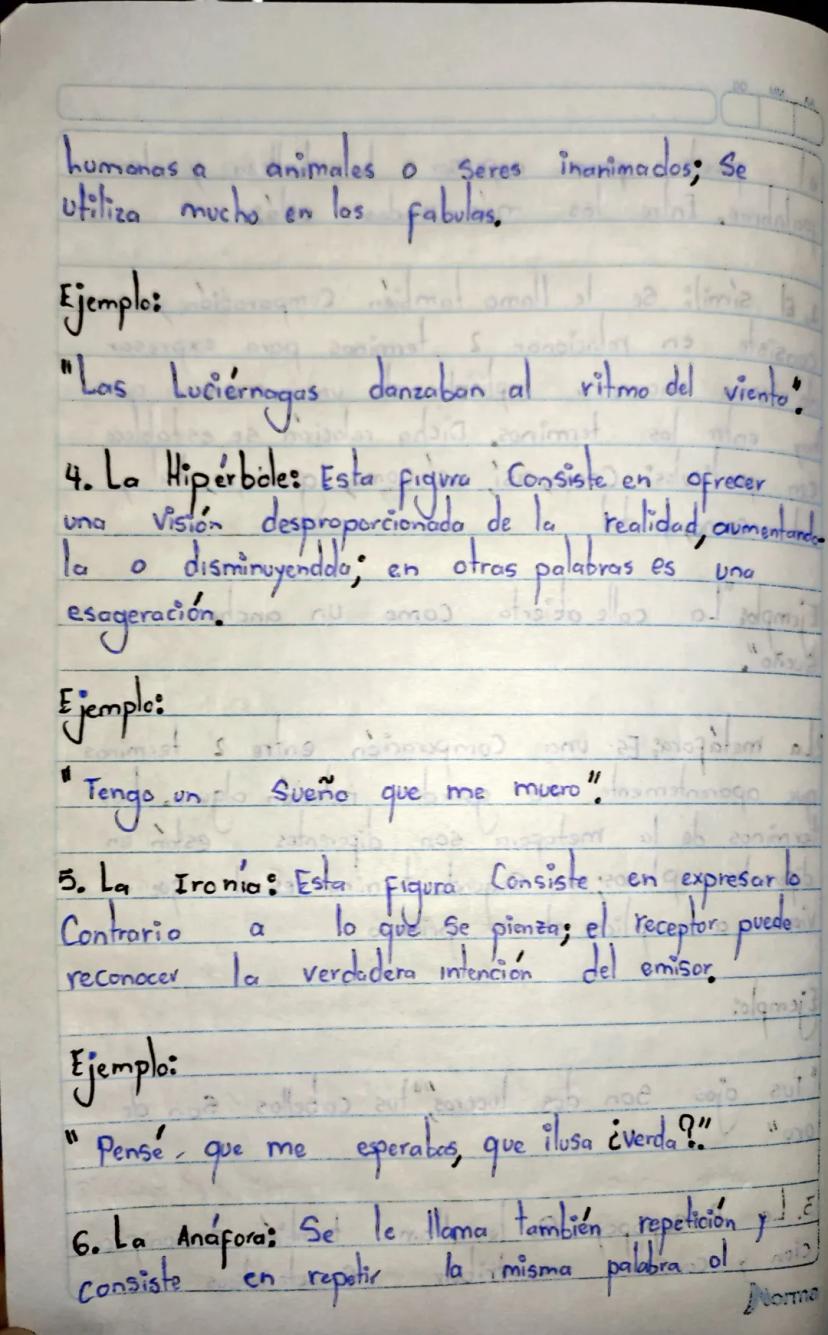 humanas a animales o seres inanimados; Se
utiliza mucho en las fabulas.
Ejemplo:
"Las Luciérnagas danzaban al ritmo del viento".
4. La Hipérbole: Esta figura Consiste en ofrecer
una visión desproporcionada de la realidad, aumentando
la o disminuyéndola; en otras palabras es una
esageración.
Ejemplo:
"Tengo un Sueño que me muero".
5. La Ironía: Esta Figura Consiste en expresar lo
Contrario a lo que se pienza; el receptor puede
reconocer la verdadera intención del emisor.
Ejemplo:
"Pensé que me esperabas, que ilusa ¿verda?."
6. La Anáfora: Se le llama también repetición y
consiste en repetir la misma palabra al
Norma